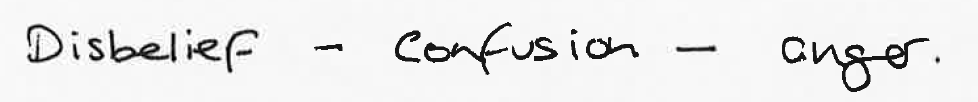 Disbelief - confusion - anger.